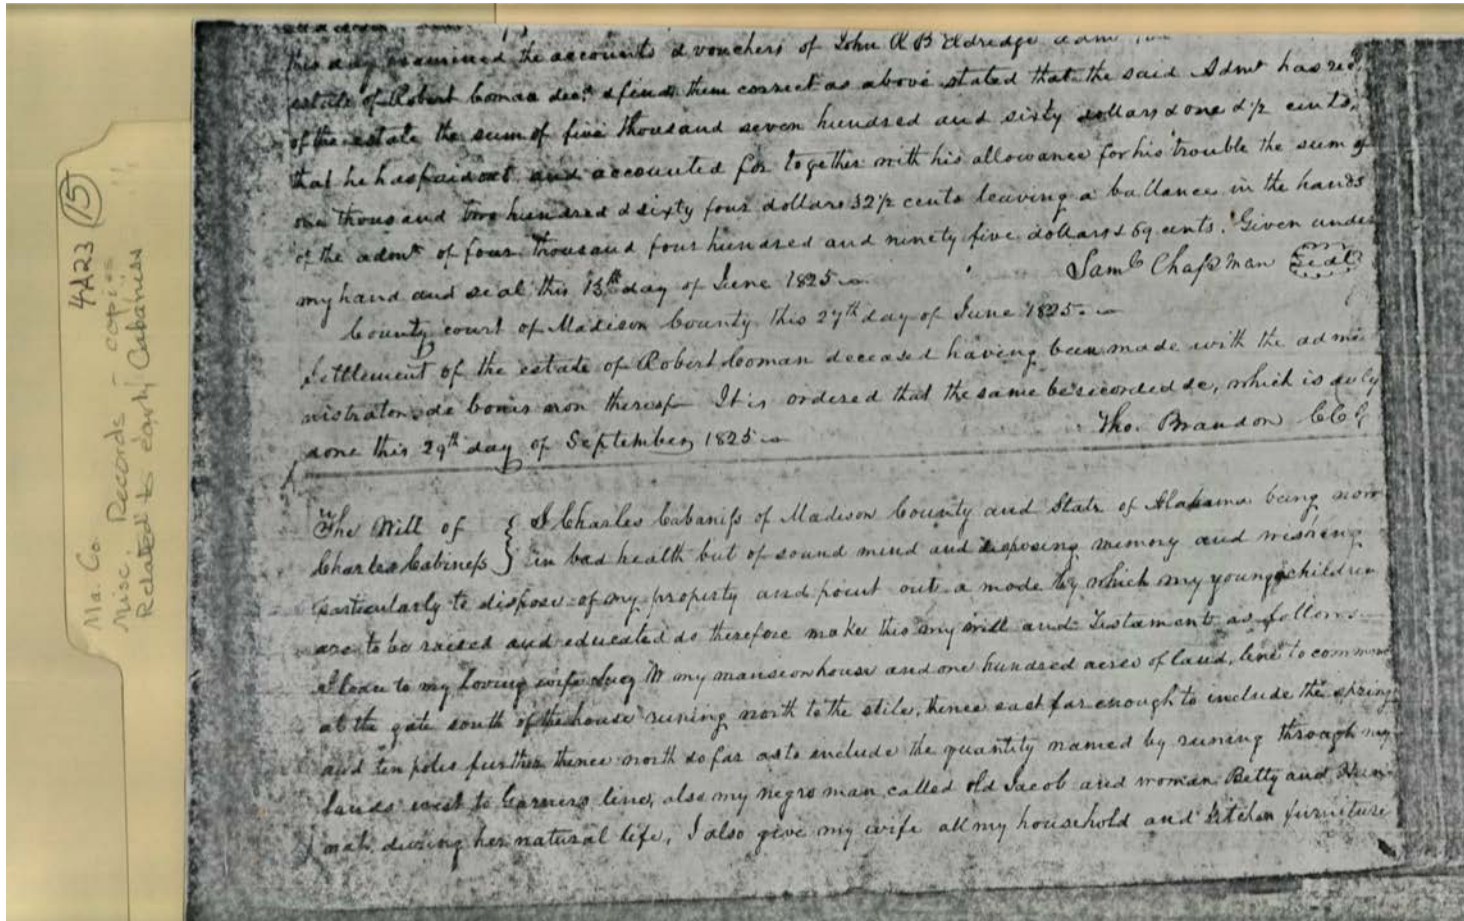 4A23 (15)
Ma. Co.
Misc. Records - copies
Related to early Cabaniss
this day examined the accounts & vouchers of John R B Eldredge adm
estate of Robert Coman decd. & find them correct as above stated that the said Admr has recd.
of the estate the sum of five thousand seven hundred and sixty dollars & one & 1/2 cents,
that he has paid out and accounted for together with his allowance for his trouble the sum of
one thousand two hundred & sixty four dollars 32 1/2 cents leaving a ballance in the hands
of the admr of four thousand four hundred and ninety five dollars & 69 cents. Given under
my hand and seal this 13th day of June 1825
Saml Chapman Seal
County court of Madison County this 27th day of June 1825
Settlement of the estate of Robert Coman deceased having been made with the admi
nistrator de bonis non thereof It is ordered that the same be recorded &c, which is duly
done this 29th day of September 1825
Tho. Brandon CCC
The Will of
Charles Cabiness
I Charles Cabaniss of Madison County and State of Alabama being now
in bad health but of sound mind and disposing memory and wishing
particularly to dispose of my property and point out a mode by which my young children
are to be raised and educated do therefore make this my will and Testament as follows
I loan to my loving wife Lucy W my mansion house and one hundred acres of land, line to commence
at the gate south of the house runing north to the stile, thence east far enough to include the spring
and ten poles further thence north so far as to include the quantity named by runing through my
lands west to Garners line, also my negro man called old Jacob and woman Betty and Han
nah during her natural life, I also give my wife all my household and kitchen furniture